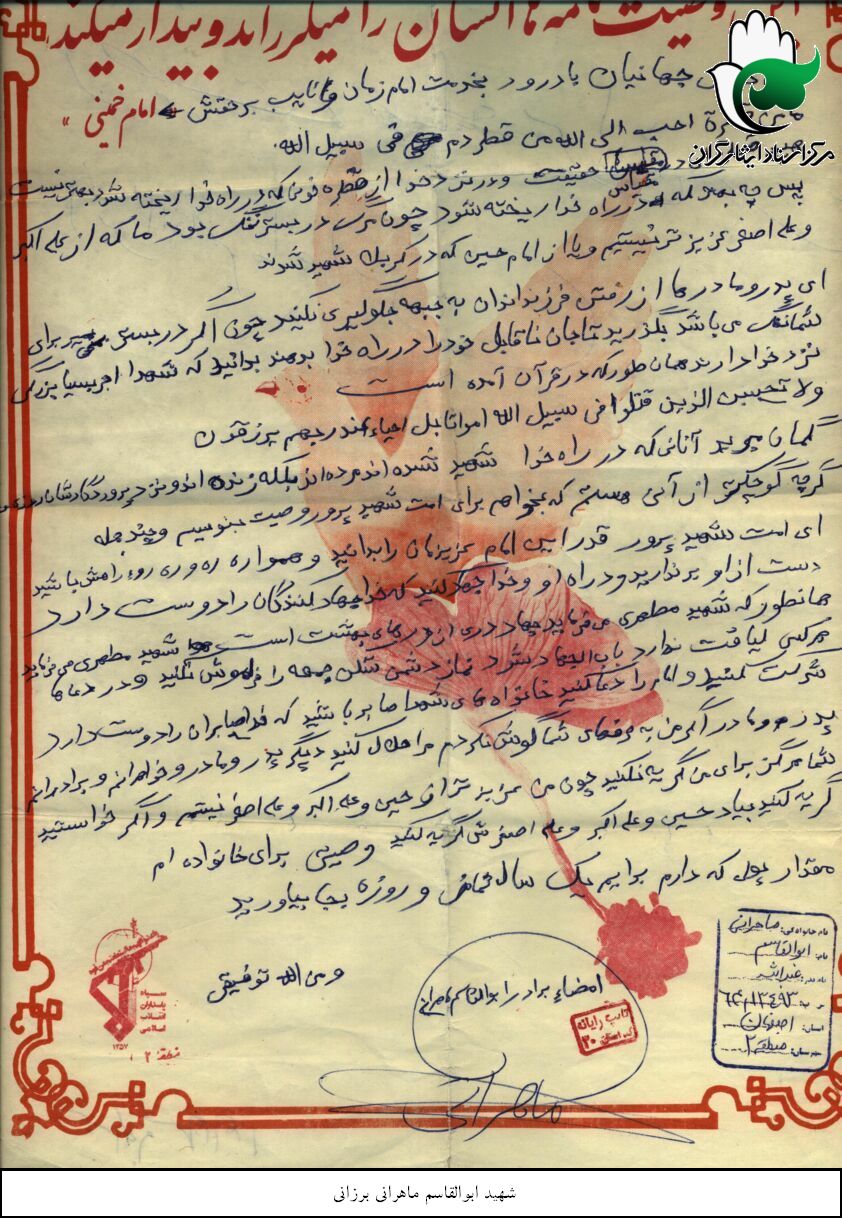 این وصیت نامه ها انسان را میلرزاند و بیدار میکند
« امام خمینی »
مرکز اسناد ایثارگران
جهانیان با درود بخدمت امام زمان و نایب برحقش
قطرة احب الی الله من قطر دم فی سبیل الله.
حقیقت در نزد خدا از قطره خونی که در راه خدا ریخته شود بهتر نیست
پس چه بهتر که در راه خدا ریخته شود چون مرگ در بستر ننگ بود ما که از علی اکبر
و علی اصغر عزیز تر نیستیم و یا از امام حسین که در کربلا شهید شدند
ای پدر و مادرها از رفتن فرزندانتان به جبهه جلوگیری نکنید چون اگر در بستر بمیرند برای
شما ننگ می باشد بگذرید تا جان ناقابل خود را در راه خدا بدهند بدانید که شهدا اجر بسیار بزرگی
نزد خدا دارند همان طور که در قرآن آمده است
ولا تحسبن الذین قتلوا فی سبیل الله امواتا بل احیاء عند ربهم یرزقون
گمان مبرید آنانی که در راه خدا شهید شده اند مرده اند بلکه زنده اند و نزد پروردگارشان روزی
گرچه کوچکتر از آنی هستم که بخواهم برای امت شهید پرور وصیت بنویسم و چند جمله
ای امت شهید پرور قدر این امام عزیزمان را بدانید و همواره ره رو راهش باشید
دست از او برندارید و در راه او و خدا جهاد کنید که خدا جهاد کنندگان را دوست دارد
همانطور که شهید مطهری می فرماید جهاد دری از درهای بهشت است شهید مطهری می فرماید
هرکسی لیاقت ندارد باب الجهاد شرد نماز دشمن شکن جمعه را فراموش نکنید و در دعاها
شرکت کنید و امام را دعا کنید خانواده های شهدا صابر باشید که خدا صابران را دوست دارد
پدر و مادر اگر من به حرفهای شما گوش نکردم مرا حلال کنید دیگر پدر و مادر و خواهرانم و برادرانم
شما هرگز برای من گریه نکنید چون من عزیز تر از حسین و علی اکبر و علی اصغر نیستم و اگر خواستید
گریه کنید بیاد حسین و علی اکبر و علی اصغرش گریه کنید وصیتی برای خانواده ام
مقدار پولی که دارم برایم یک سال نماز و روزه بجا بیاورید
و من الله توفیق
امضاء برادر ابوالقاسم ماهرانی
ماهرانی
تایپ رایانه
کد استان ۳۰
نام خانوادگی: ماهرانی
نام: ابوالقاسم
نام پدر:
استان: اصفهان
منطقه ۲
سپاه
پاسداران
انقلاب
اسلامی
۱۳۵۷
منطقه ۲
شهید ابوالقاسم ماهرانی برزانی